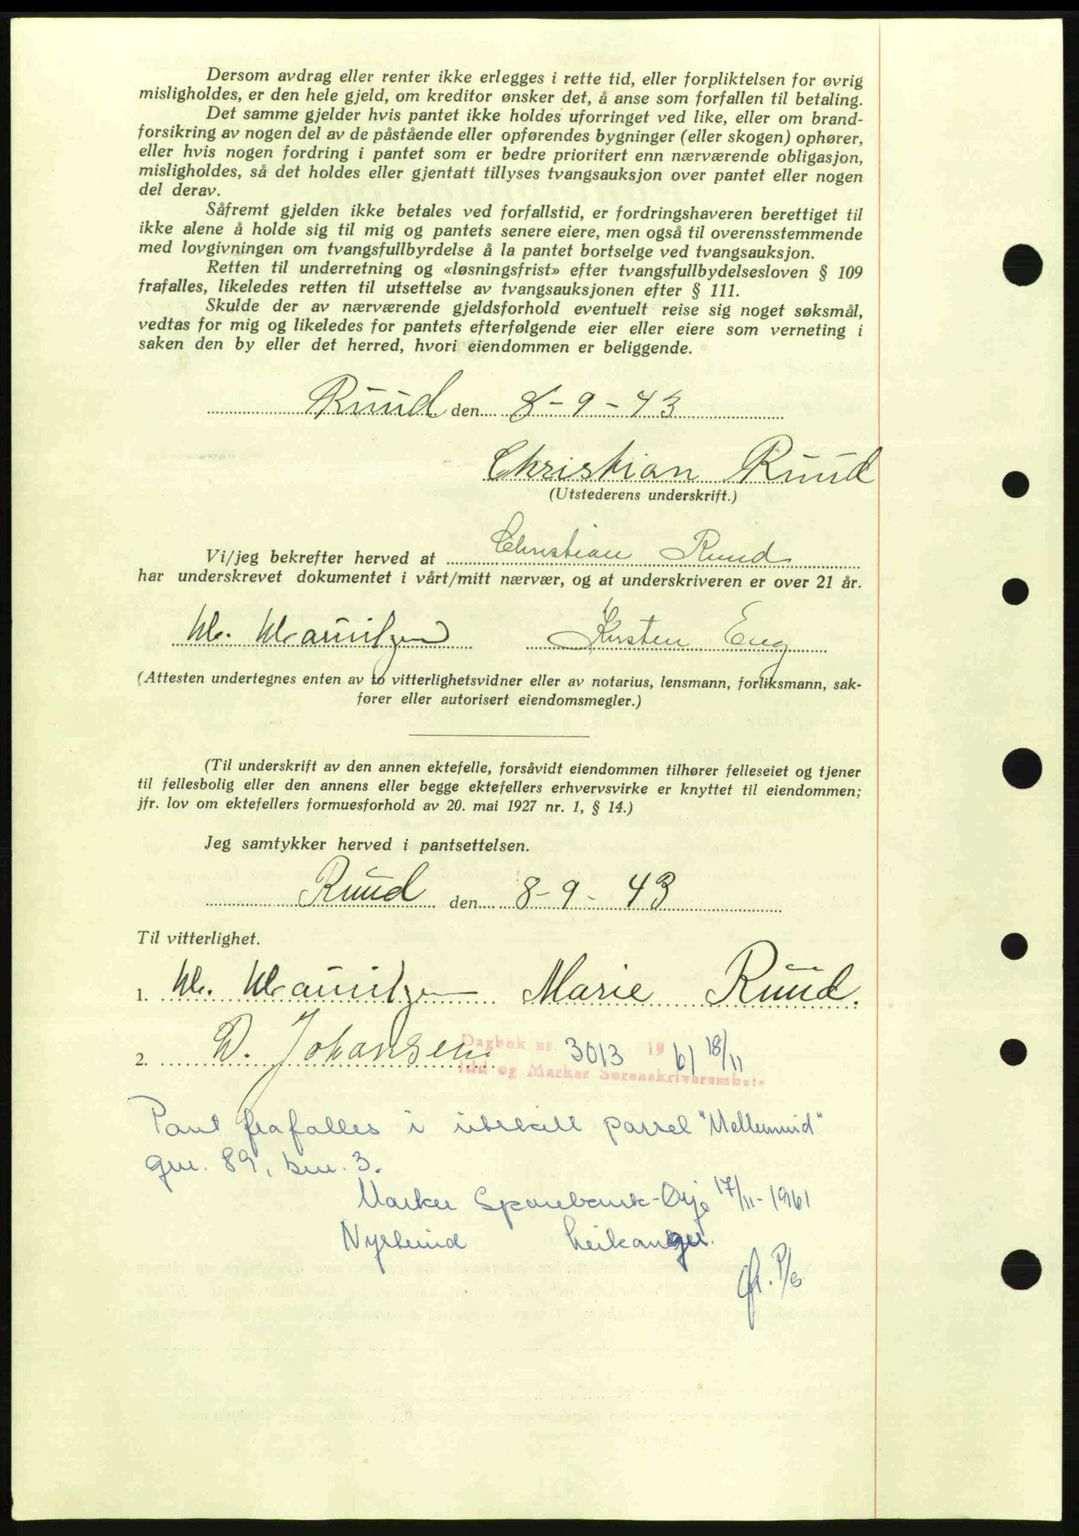 Dersom avdrag eller renter ikke erlegges i rette tid, eller forpliktelsen for øvrig
misligholdes, er den hele gjeld, om kreditor ønsker det, å anse som forfallen til betaling.
Det samme gjelder hvis pantet ikke holdes uforringet ved like, eller om brand-
forsikring av nogen del av de påstående eller opførendes bygninger (eller skogen) ophører,
eller hvis nogen fordring i pantet som er bedre prioritert enn nærværende obligasjon,
misligholdes, så det holdes eller gjentatt tillyses tvangsauksjon over pantet eller nogen
del derav.
Såfremt gjelden ikke betales ved forfallstid, er fordringshaveren berettiget til
ikke alene å holde sig til mig og pantets senere eiere, men også til overensstemmende
med lovgivningen om tvangsfullbyrdelse å la pantet bortselge ved tvangsauksjon.
Retten til underretning og «løsningsfrist» efter tvangsfullbydelsesloven § 109
frafalles, likeledes retten til utsettelse av tvangsauksjonen efter § 111.
Skulde der av nærværende gjeldsforhold eventuelt reise sig noget søksmål,
vedtas for mig og likeledes for pantets efterfølgende eier eller eiere som verneting i
saken den by eller det herred, hvori eiendommen er beliggende.
Ruud den 8-9-43
Christian Ruud
(Utstederens underskrift.)
Vi/jeg bekrefter herved at Christian Ruud
har underskrevet dokumentet i vårt/mitt nærvær, og at underskriveren er over 21 år.
Kirsten Eng
(Attesten undertegnes enten av to vitterlighetsvidner eller av notarius, lensmann, forliksmann, sak-
fører eller autorisert eiendomsmegler.)
(Til underskrift av den annen ektefelle, forsåvidt eiendommen tilhører felleseiet og tjener
til fellesbolig eller den annens eller begge ektefellers erhvervsvirke er knyttet til eiendommen;
jfr. lov om ektefellers formuesforhold av 20. mai 1927 nr. 1, § 14.)
Jeg samtykker herved i pantsettelsen.
Ruud den 8-9-43
Til vitterlighet.
1. Marie Ruud.
2. D. Johansen
Dagbok nr. 3013 1961 18/11
Idd og Marker Sorenskriverembete
Pant frafalles i utskilt parsel "Mellemrud"
gnr. 89, bnr. 3.
Marker Sparebank-Ørje 17/11-1961